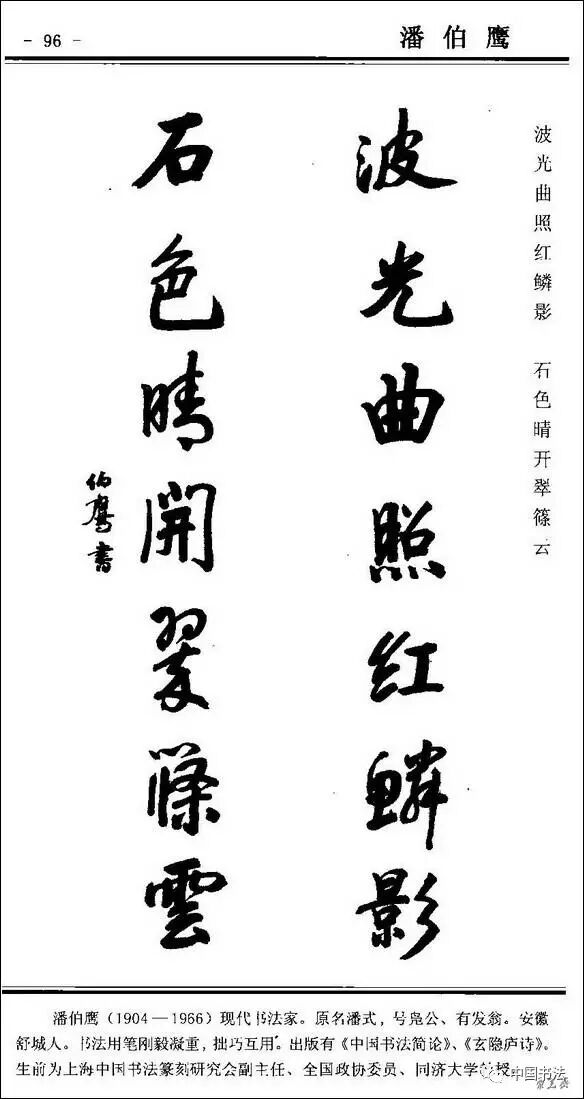 - 96 -
潘伯鹰
波光曲照红鳞影 石色晴开翠篠云
波光曲照红鳞影
石色晴開翠篠雲
伯鹰書
潘伯鹰（1904—1966）现代书法家。原名潘式，号凫公、有发翁。安徽
舒城人。书法用笔刚毅凝重，拙巧互用。出版有《中国书法简论》、《玄隐庐诗》。
生前为上海中国书法篆刻研究会副主任、全国政协委员、同济大学教授。
中国书法